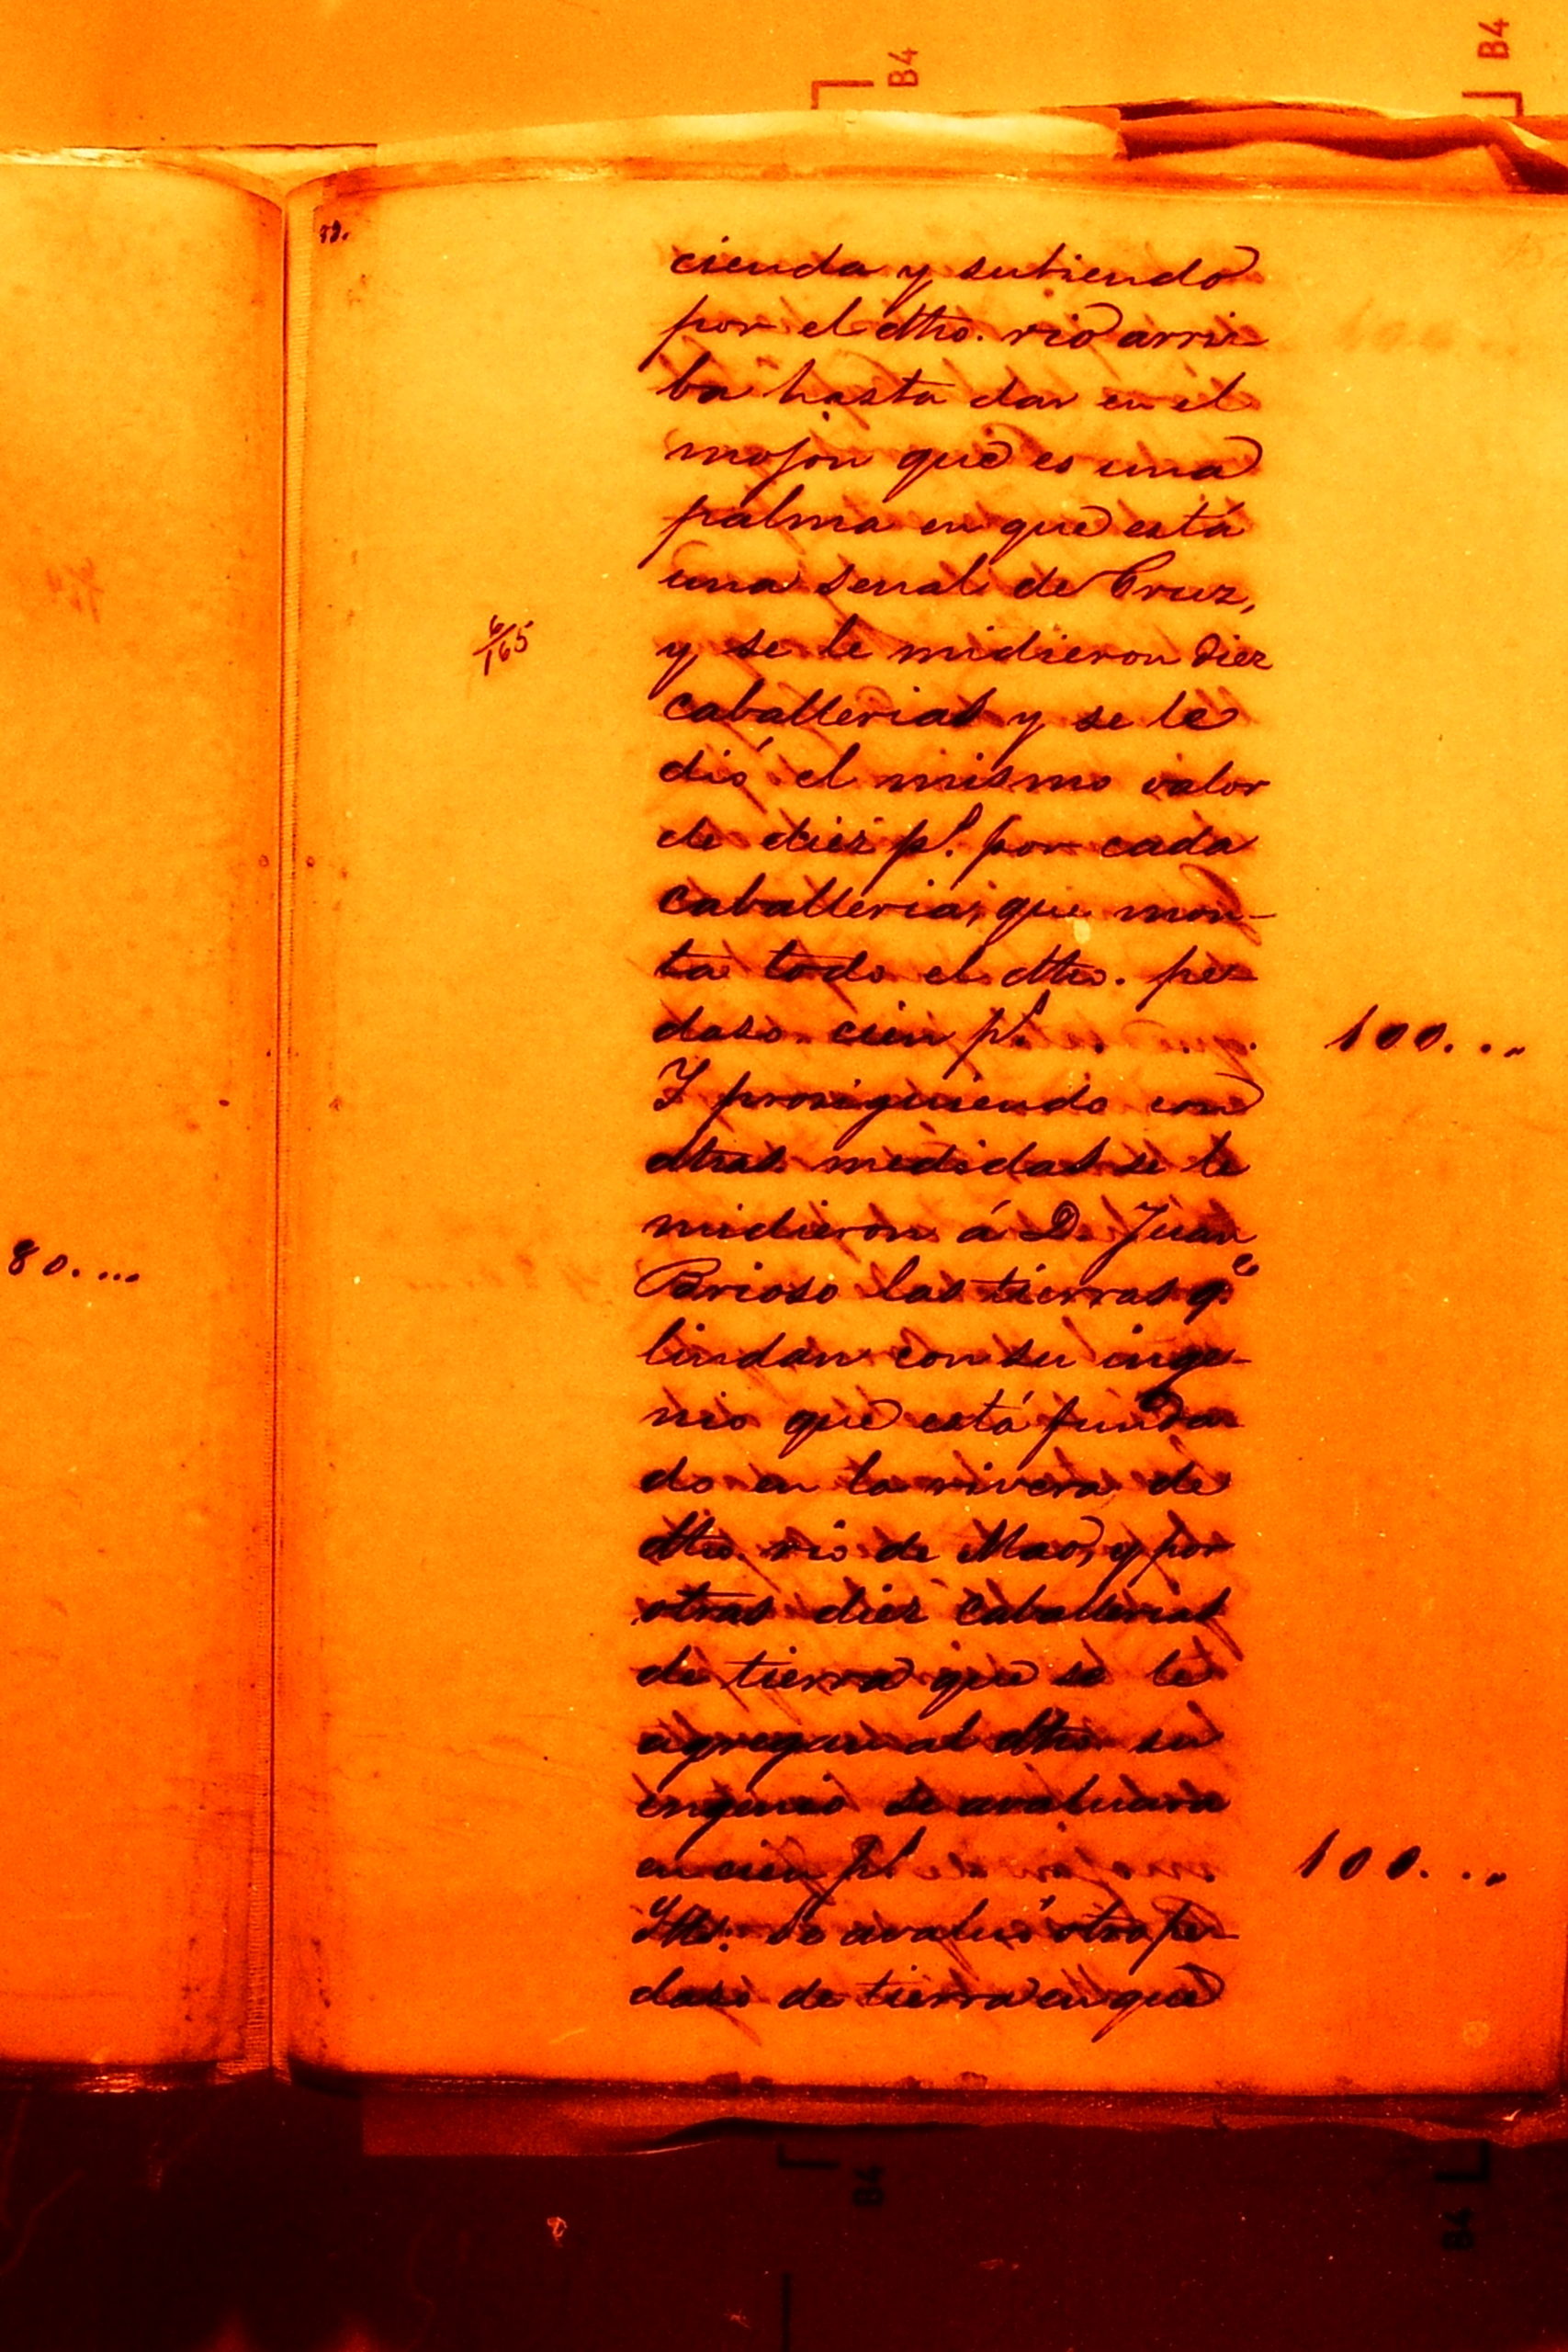 B4
B4
cienda y subiendo
por el dho. rio arri
ba hasta dar en el
mojon que es una
palma en que está
una senal de Cruz,
6/165
y se le midieron diez
caballerias y se le
dió el mismo valor
de diez ps. por cada
caballeria, que mon-
ta todo el dho. pe-
daso cien ps. . . . 100. . ..
Y prosiguiendo con
dhas. medidas se le
midieron á D. Juan
Brioso las tierras qe.
80. ...
lindan con su inge-
nio que está funda
do en la rivera de
dho. rio de Mao, y por
otras diez caballerias
de tierra que se le
agregan al dho. su
engenio se avaluara
en cien ps. 100. . ..
Yttt. se avaluó otro pe-
daso de tierra en que
B4
B4